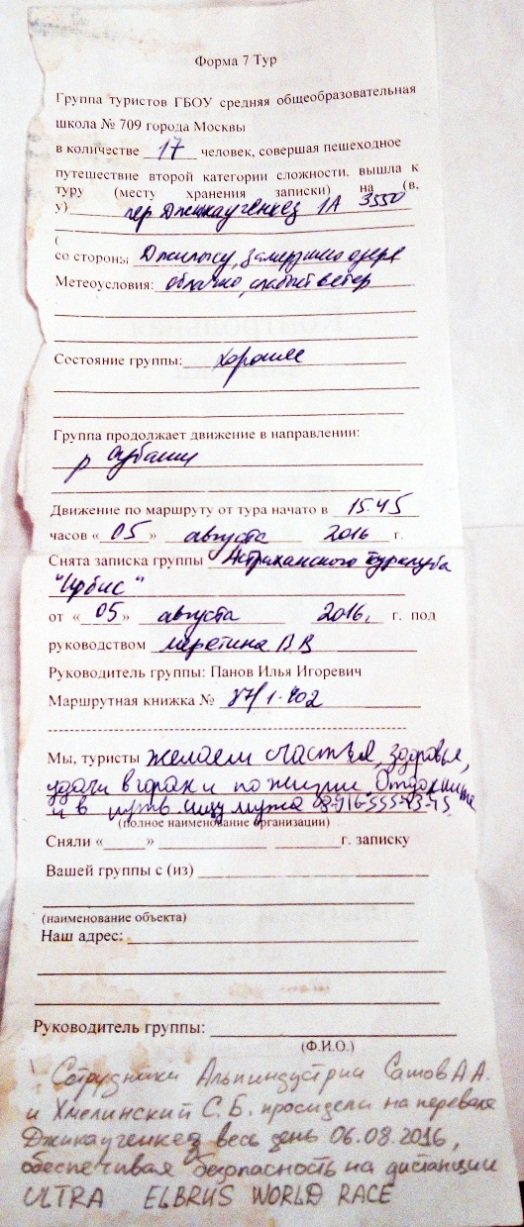 Форма 7 Тур
Группа туристов ГБОУ средняя общеобразовательная
школа № 709 города Москвы
в количестве 17 человек, совершая пешеходное
путешествие второй категории сложности, вышла к
туру (месту хранения записки) на (в,
у) пер Джикаугенкез 1А 3550
(
со стороны Джилысу, замерзшего озера
Метеоусловия: облачно, слабый ветер
Состояние группы: хорошее
Группа продолжает движение в направлении:
р Субаши
Движение по маршруту от тура начато в 15.45
часов «05» августа 2016 г.
Снята записка группы Астраханского турклуба
"Ирбис"
от «05» августа 2016, г. под
руководством В В
Руководитель группы: Панов Илья Игоревич
Маршрутная книжка №
Мы, туристы желаем счастья, здоровья,
удачи в горах и по жизни. Отдохните
и в путь. ищу мужа
(полное наименование организации)
Сняли «_____» г. записку
Вашей группы с (из)
(наименование объекта)
Наш адрес:
Руководитель группы:
(Ф.И.О.)
Сотрудники Альпиндустрии Сатов А А.
и Хмелинский С. Б. просидели на перевале
Джикаугенкез весь день 06.08.2016,
обеспечивая безопасность на дистанции
ULTRA ELBRUS WORLD RACE